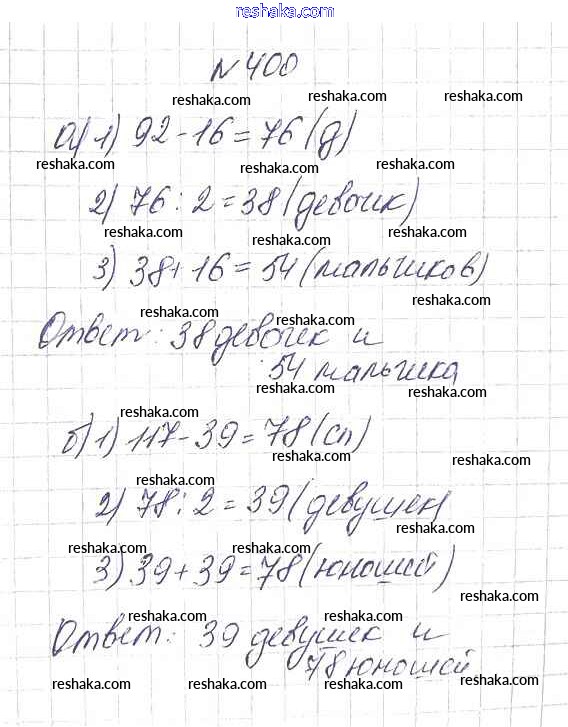 www.reshaka.com
N 400
reshaka.com reshaka.com reshaka.com
а) 1) 92 - 16 = 76 (д)
reshaka.com reshaka.com reshaka.com
2) 76 : 2 = 38 (девочек)
reshaka.com reshaka.com
3) 38 + 16 = 54 (мальчиков)
reshaka.com reshaka.com
Ответ: 38 девочек и
54 мальчика
reshaka.com reshaka.com
reshaka.com
б) 1) 117 - 39 = 78 (сп)
reshaka.com reshaka.com
reshaka.com
2) 78 : 2 = 39 (девушек)
reshaka.com
reshaka.com reshaka.com
3) 39 + 39 = 78 (юношей)
reshaka.com
reshaka.com reshaka.com
Ответ: 39 девушек и
78 юношей
reshaka.com reshaka.com reshaka.com reshaka.com